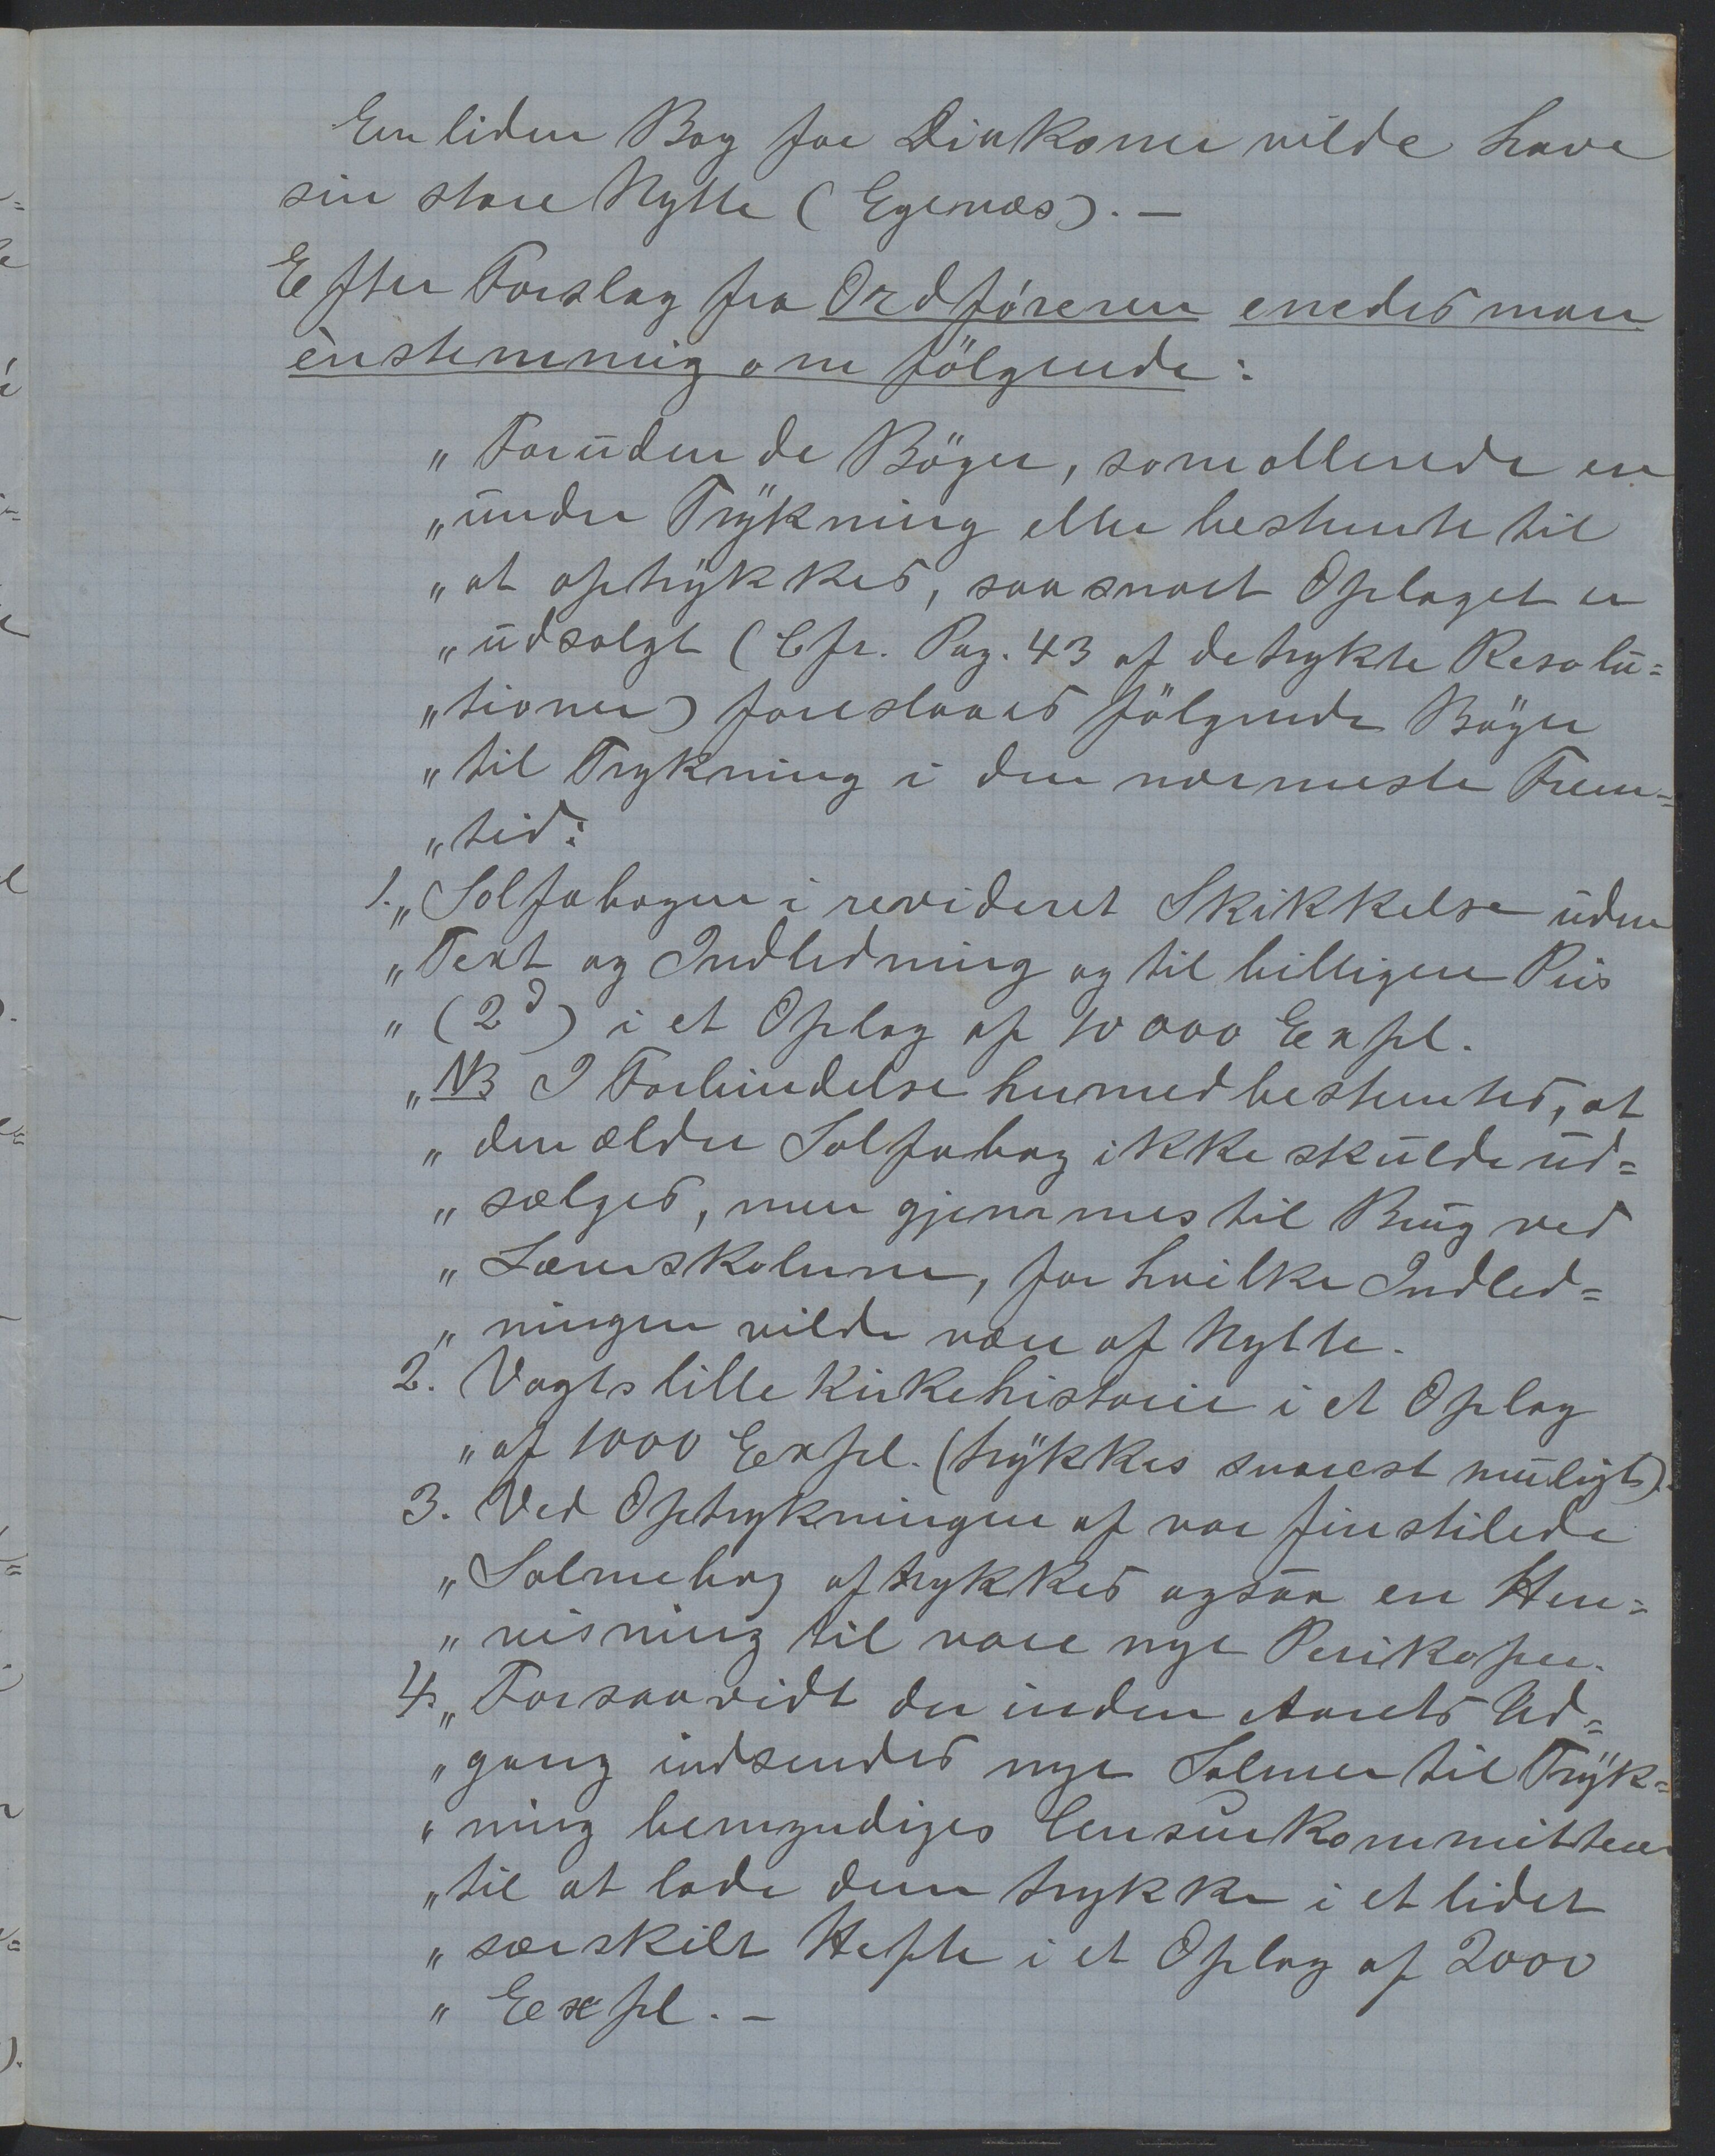 En liden Bog for Diakoner vilde have
sin store Nytte (Egenæs). —
Efter Forslag fra Ordföreren enedes man
ènstemmig om fölgende:
„ Foruden de Böger, som allerede er
„ under Trykning eller bestemte til
„ at optrykkes, saasnart Oplaget er
„ udsolgt (Cfr. Pag. 43 af de trykte Resolu=
„ tioner) foreslaaes fölgende Böger
„ til Trykning i den nærmeste Frem=
„ tid:
1. „ Solfabogen i revideret Skikkelse uden
„ Text og Indledning og til billigere Pris
„ (2d) i et Oplag af 10 000 Expl.
„ NB I Forbindelse hermed bestemtes, at
„ den ældre Solfabog ikke skulde ud=
„ sælges, men gjemmes til Brug ved
„ Lærerskolerne, for hvilke Indled=
„ ningen vilde være af Nytte.
2. Vogts lille Kirkehistorie i et Oplag
„ af 1000 Expl. (trykkes snarest muligt).
3. Ved Optrykningen af vor finstilede
„ Salmebog aftrykkes ogsaa en Hen=
„ visning til vore nye Perikoper.
4. „ Forsaavidt der inden Aarets Ud=
„ gang indsendes nye Salmer til Tryk=
„ ning bemyndiges Censurkommitteen
„ til at lade dem trykke i et lidet
„ særskilt Hefte i et Oplag af 2000
„ Expl. —